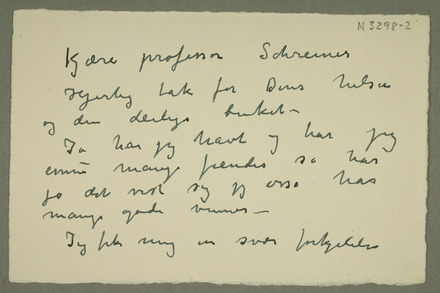 N 3298-2
Kjære professor Schreiner
Hjertelig tak for Deres hilsen
og den deilige buket –
Ja har jeg havt og har jeg
ennu mange fiender så har
jo det vist sig jeg også har
mange gode venner –
Jeg fik mig en svær forkjølelse